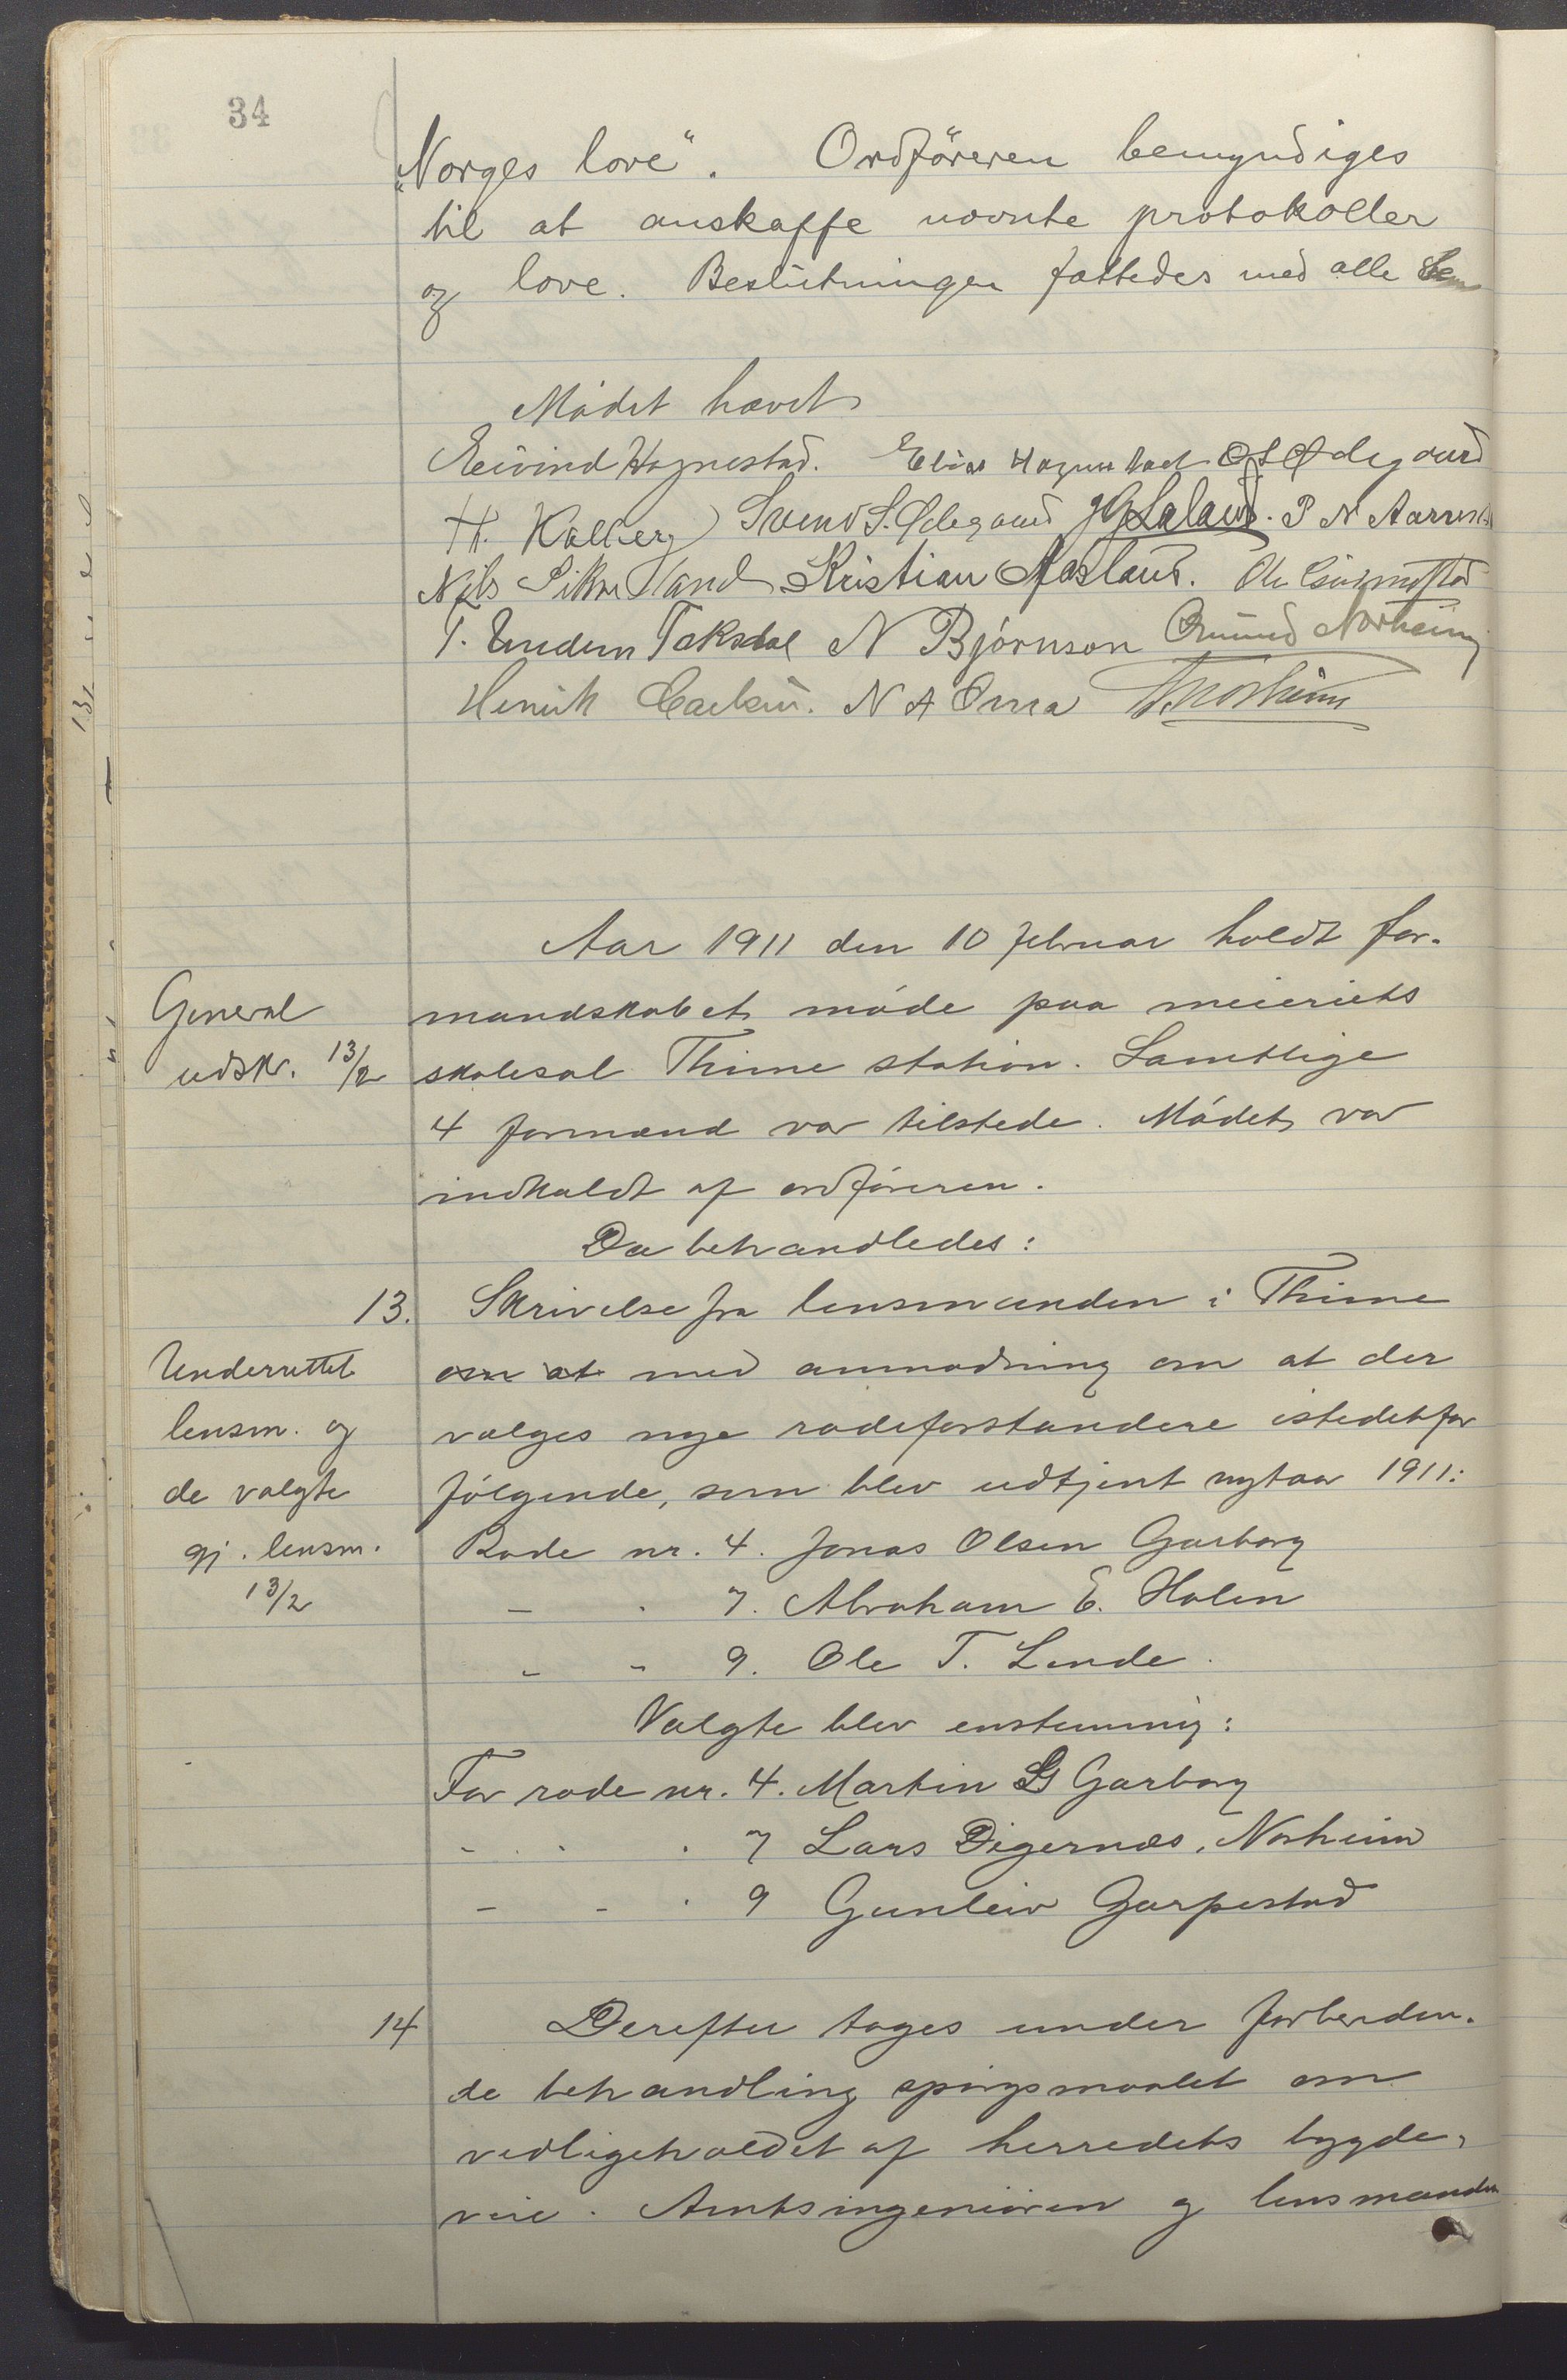 34
„Norges love“. Ordföreren bemyndiges
til at anskaffe nævnte protokoller
og love. Beslutningen fattedes med alle
Mødet hævet
Eivind Hognestad. Elias Hognestad O S Ødegaard
H. Kalberg Svend S. Ødegaard J G Laland. P N Aarrestad
Nils Sikveland Kristian Aasland. Ole
T. Undem Taksdal N Bjørnson Omund Norheim
Henrik N A Orra
Aar 1911 den 10 februar holdt for-
General mandskabet møde paa meieriets
udskr. 13/2 skolesal Thime station. Samtlige
4 formænd var tilstede. Mødet var
indkaldt af ordføreren.
Da behandledes:
13. Skrivelse fra lensmanden i Thime
Underrettet om at med anmodning om at der
lensm. og vælges nye rodeforstandere istedetfor
de valgte følgende, som blev udtjent nytaar 1911:
gj. lensm. Rode nr. 4. Jonas Olsen Garborg
13/2 - . 7. Abraham E. Holen
- - 9. Ole T. Lende.
Valgte blev enstemmig:
For rode nr. 4. Martin G Garborg
- . . 7 Lars Digernæs, Norheim
- - . 9 Gunleiv Garpestad
14 Derefter toges under forbereden-
de behandling spörgsmaalet om
vedligeholdet af herredets bygde-
veie. Amtsingeniøren og lensmanden